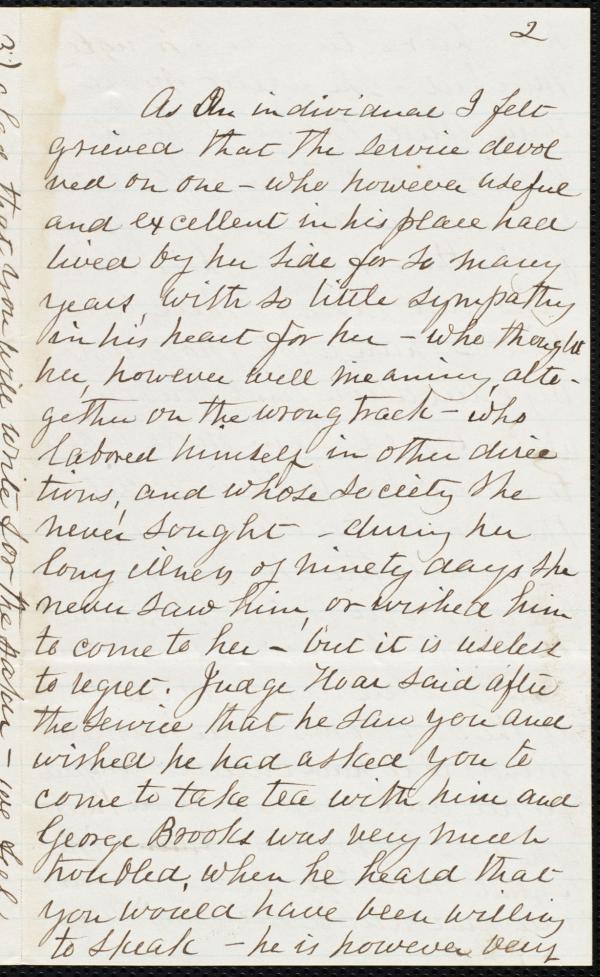 2
As An individual I felt
grieved that the service devol
ved on one - who however useful
and excellent in his place had
lived by her side for so many
years, with so little sympathy
in his heart for her - who thought
her, however well meaning, alto-
gether on the wrong track - who
labored himself in other direc
tions, and whose society she
never sought - during her
long illness of ninety days she
never saw him, or wished him
to come to her - but it is useless
to regret. Judge Hoar said after
the service that he saw you and
wished he had asked you to
come to take tea with him and
George Brooks was very much
troubled, when he heard that
you would have been willing
to speak - he is however very
that you will write for the paper - we feel